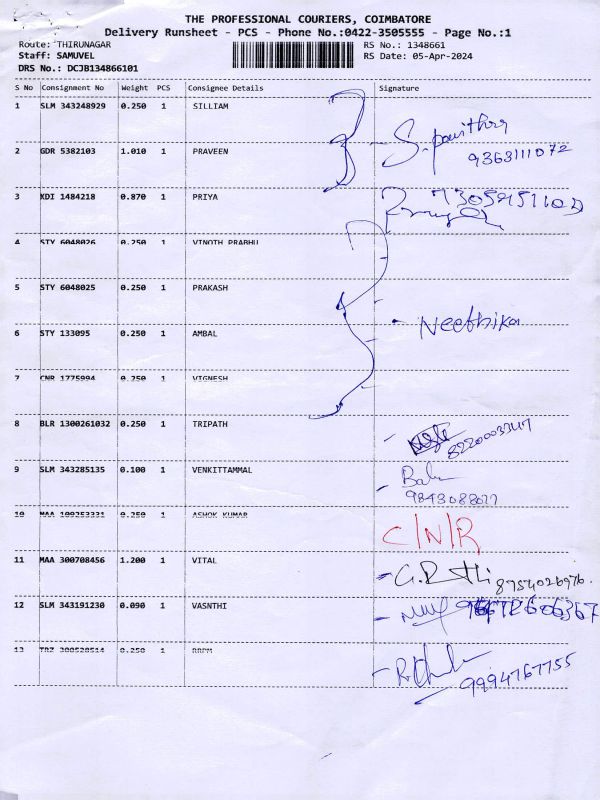 THE PROFESSIONAL COURIERS, COIMBATORE
Delivery Runsheet - PCS - Phone No.:0422-3505555 - Page No.:1
Route: THIRUNAGAR RS No.: 1348661
Staff: SAMUVEL RS Date: 05-Apr-2024
DRS No.: DCJB134866101
S No Consignment No Weight PCS Consignee Details Signature
1 SLM 343248929 0.250 1 SILLIAM
S. pavithra
9363111072
2 GDR 5382103 1.010 1 PRAVEEN
3 KDI 1484218 0.870 1 PRIYA
4 STY 6048026 0.250 1 VINOTH PRABHU
5 STY 6048025 0.250 1 PRAKASH
Neethika
6 STY 133095 0.250 1 AMBAL
7 CNR 1775994 0.250 1 VIGNESH
8 BLR 1300261032 0.250 1 TRIPATH
9 SLM 343285135 0.100 1 VENKITTAMMAL
9843088027
10 MAA 109253331 0.250 1 ASHOK KUMAR
C/N/R
11 MAA 300708456 1.200 1 VITAL
8754026976.
12 SLM 343191230 0.090 1 VASNTHI
13 TRZ 300528514 0.250 1
9994767755